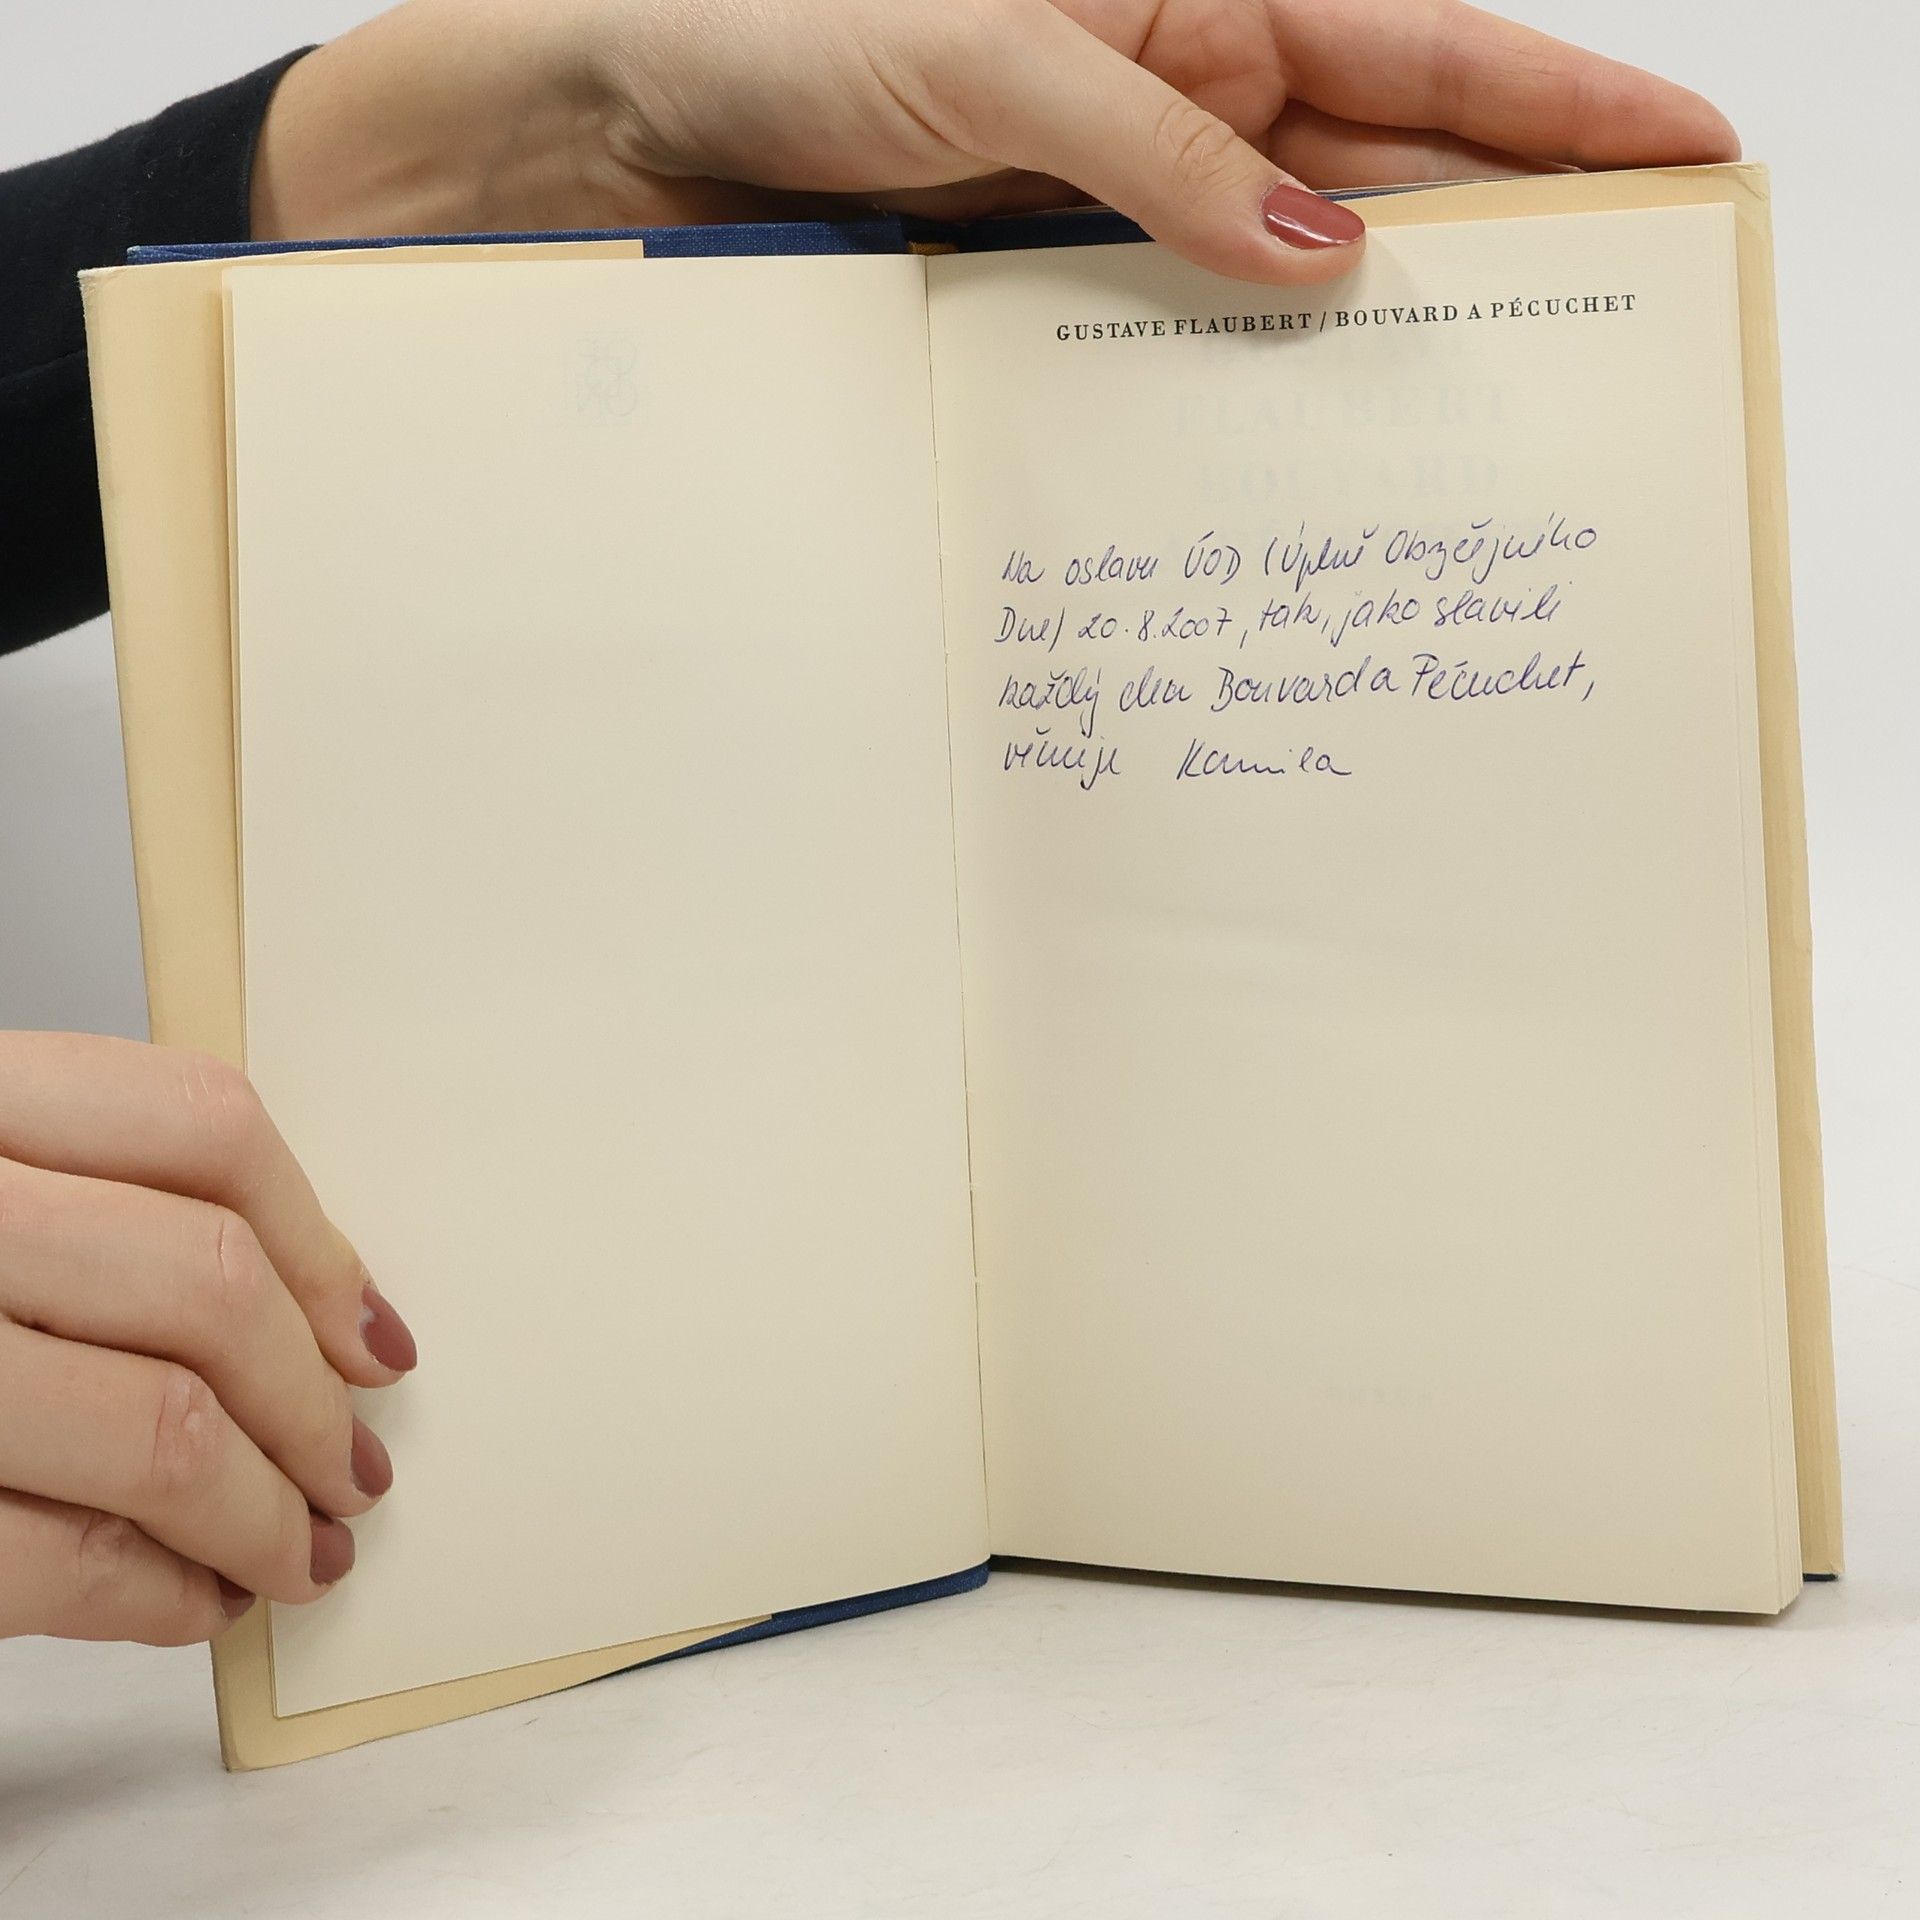 GUSTAVE FLAUBERT / BOUVARD A PÉCUCHET
Na oslavu ÚOD (Úplně Obyčejného
Dne) 20.8.2007, tak, jako slavili
každý den Bouvard a Pécuchet,
věnuje Kamila